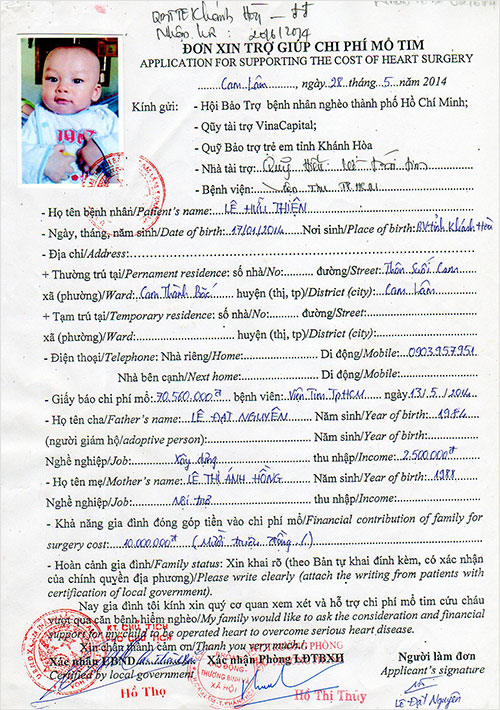 QBTTE Khánh Hòa
Nhận, lúc : 20/6/2014
ĐƠN XIN TRỢ GIÚP CHI PHÍ MỔ TIM
APPLICATION FOR SUPPORTING THE COST OF HEART SURGERY
Cam Lâm, ngày 28 tháng 5 năm 2014
Kính gửi: - Hội Bảo Trợ bệnh nhân nghèo thành phố Hồ Chí Minh;
- Qũy tài trợ VinaCapital;
- Quỹ Bảo trợ trẻ em tỉnh Khánh Hòa
- Nhà tài trợ: Quỹ
- Bệnh viện: Viện Tim TP.HCM
- Họ tên bệnh nhân/Patient's name: LÊ HỮU THIÊN
- Ngày, tháng, năm sinh/Date of birth: 17/01/2014 Nơi sinh/Place of birth: BV tỉnh Khánh Hòa
- Địa chỉ/Address:
+ Thường trú tại/Pernament residence: số nhà/No: đường/Street: Thôn Suối Cam
xã (phường)/Ward: Cam Thành Bắc huyện (thị, tp)/District (city): Cam Lâm
+ Tạm trú tại/Temporary residence: số nhà/No: đường/Street:
xã (phường)/Ward: huyện (thị, tp)/District (city):
- Điện thoại/Telephone: Nhà riêng/Home: Di động/Mobile: 0903957951
Nhà bên cạnh/Next home: Di động/Mobile:
- Giấy báo chi phí mổ: 70.560.000đ bệnh viện: Viện Tim TpHCM ngày 13/5/2014
- Họ tên cha/Father's name: LÊ ĐẠT NGUYÊN Năm sinh/Year of birth: 1984
(người giám hộ/adoptive person): Năm sinh/Year of Birth:
Nghề nghiệp/Job: Xây dựng thu nhập/Income: 2.500.000đ
- Họ tên mẹ/Mother's name: LÊ THỊ ÁNH HỒNG Năm sinh/Year of birth: 1988
Nghề nghiệp/Job: Nội trợ thu nhập/Income:
- Khả năng gia đình đóng góp tiền vào chi phí mổ/Financial contribution of family for
surgery cost: 10.000.000đ (Mười triệu đồng /)
- Hoàn cảnh gia đình/Family status: Xin khai rõ (theo Bản tự khai đính kèm, có xác nhận
của chính quyền địa phương)/Please write clearly (attach the writing from patients with
certification of local government).
Nay gia đình tôi kính xin quý cơ quan xem xét và hỗ trợ chi phí mổ tim cứu cháu
vượt qua căn bệnh hiểm nghèo/My family would like to ask the consideration and financial
support for my child to be operated heart to overcome serious heart disease.
Xin chân thành cảm ơn/Thank you very much.
KT. CHỦ TỊCH
PHÓ CHỦ TỊCH
PHÓ TRƯỞNG PHÒNG
Xác nhận UBND Xác nhận Phòng LĐTBXH Người làm đơn
Certified by local government Applicant's signature
PHÒNG LAO ĐỘNG- THƯƠNG BINH VÀ XÃ HỘI
Hồ Thọ Hồ Thị Thúy Lê Đạt Nguyên